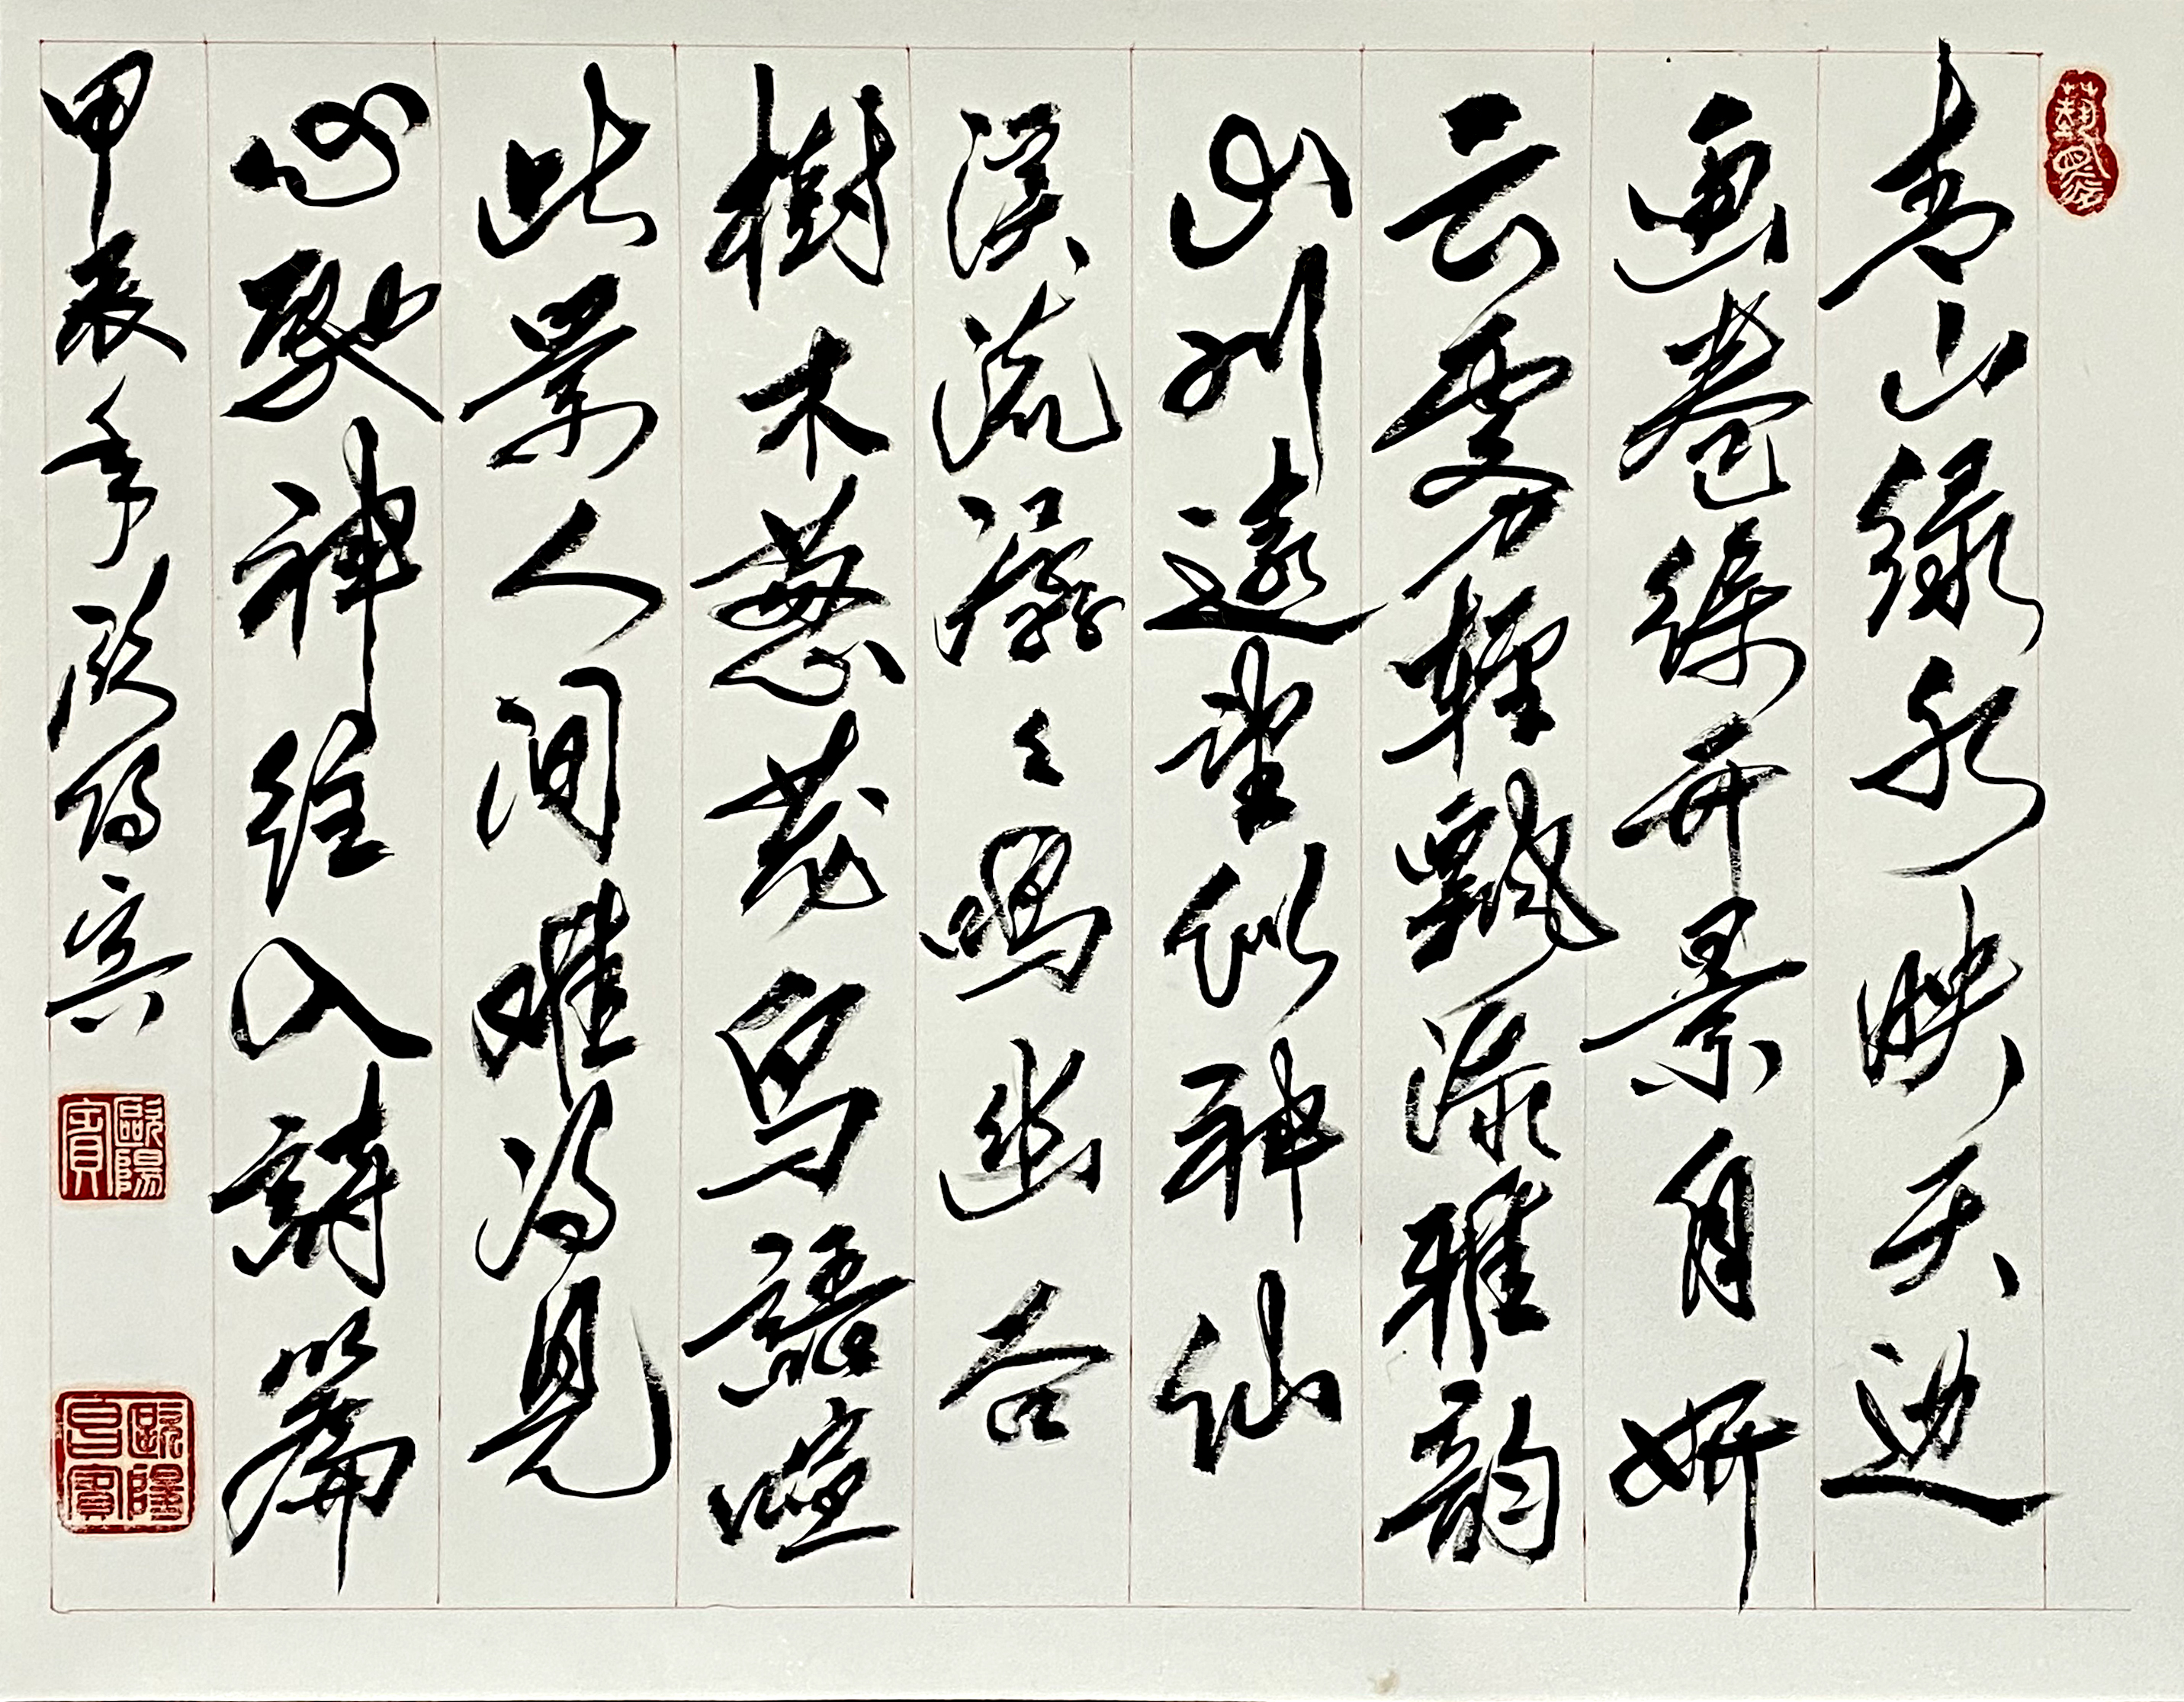 青山绿水映天边
画卷缘开景自妍
云雾轻飘添雅韵
山川远望似神仙
溪流潺々鸣幽谷
樹木葱茏鸟語喧
此景人间难得见
心驰神往入詩篇
甲辰年欧阳宾
歐陽賓